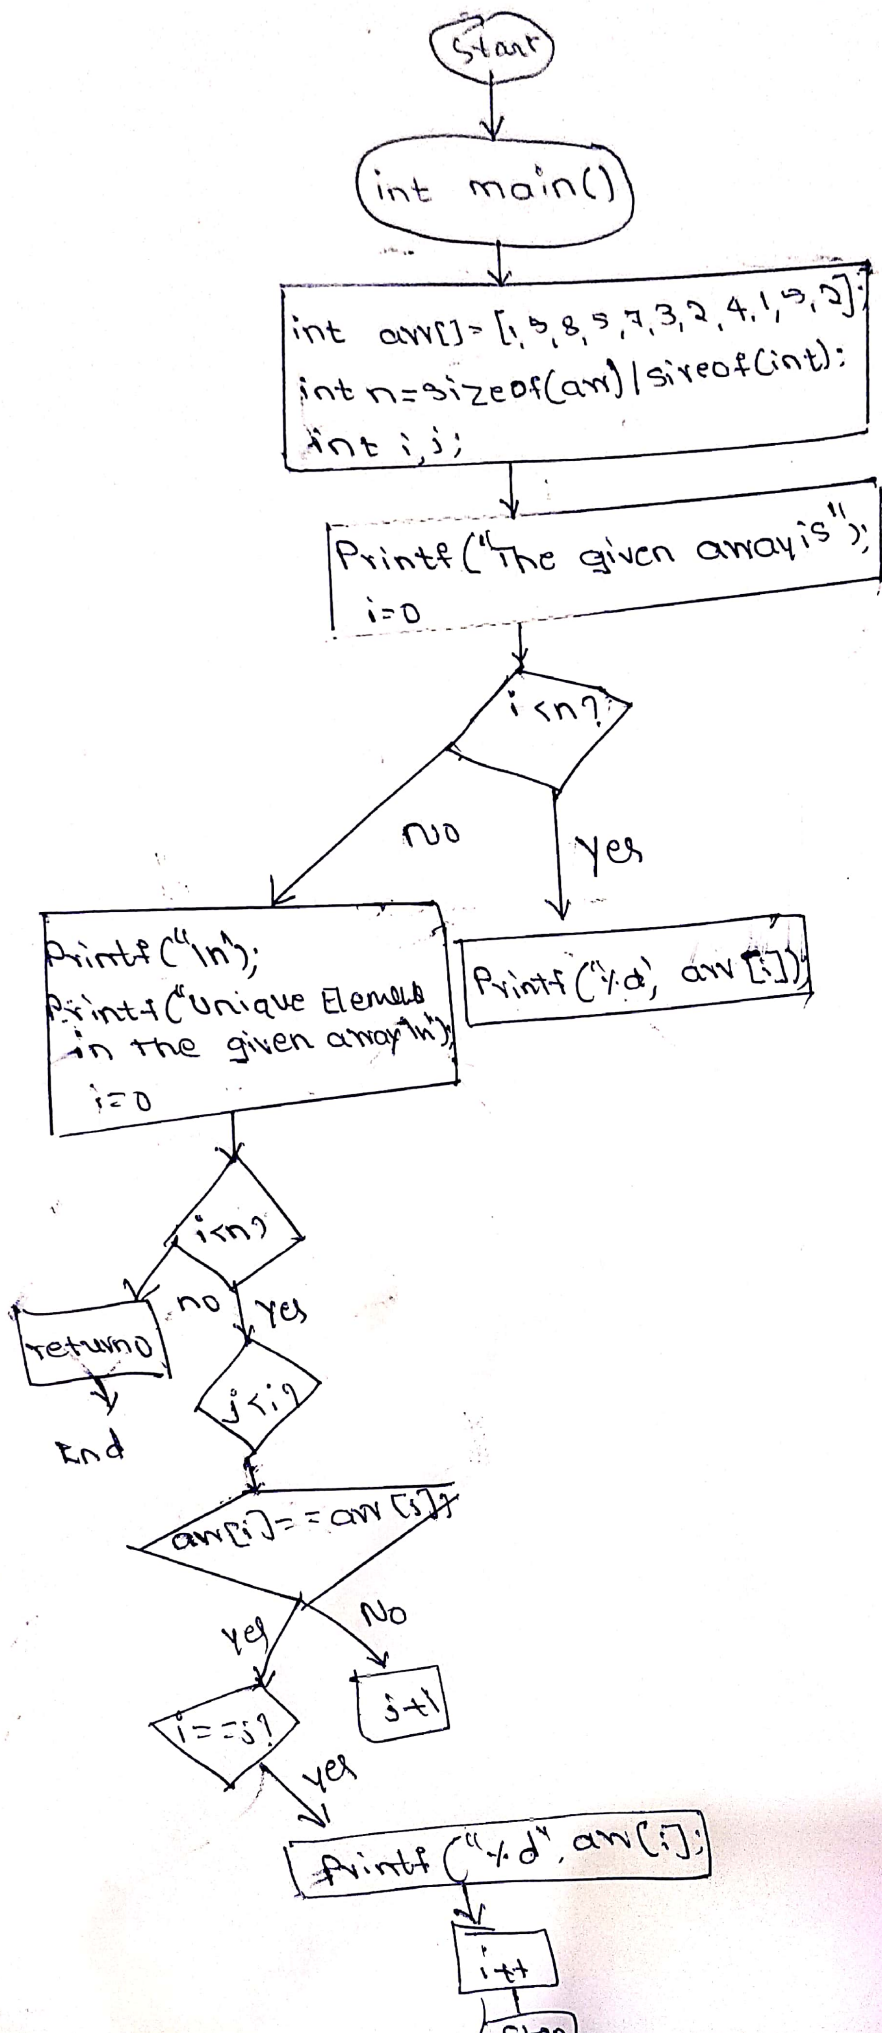 Start
int main()
int arr[] = [1,5,8,5,7,3,2,4,1,9,2];
int n=sizeof(arr)/sizeof(int);
int i,j;
Printf("The given array is");
i=0
i<n?
NO
Yes
Printf("\n");
Printf("Unique Elements
in the given array\n");
i=0
Printf("%d", arr[i]);
i<n?
no
Yes
return 0
j<i?
End
arr[i]==arr[j]?
Yes
No
i==j?
j+1
yes
Printf("%d", arr[i];
i++